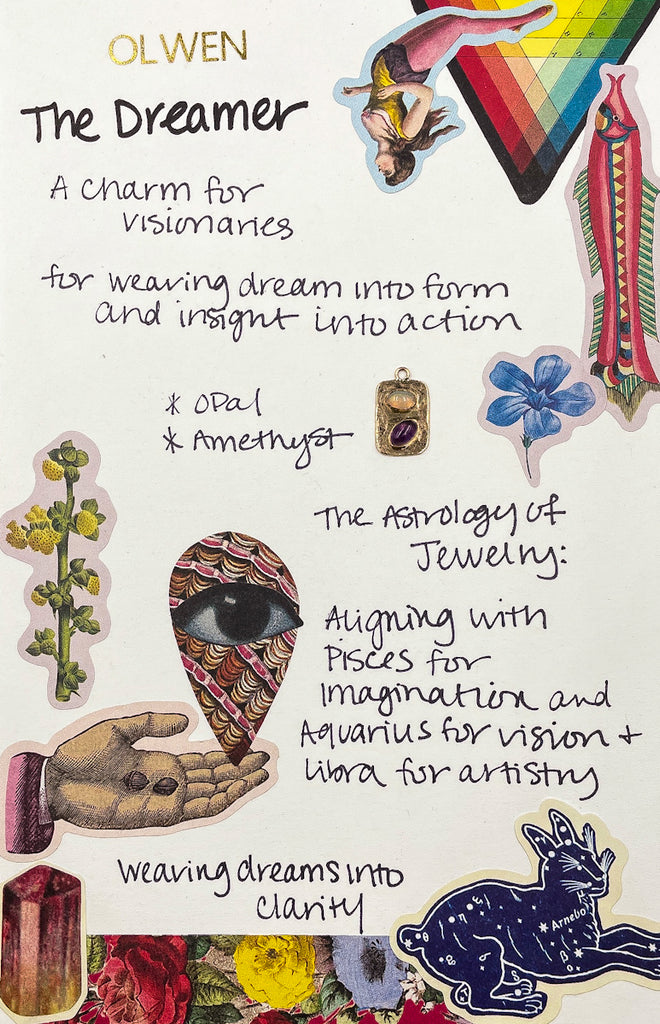 OLWEN
The Dreamer
A charm for
visionaries
for weaving dream into form
and insight into action
* Opal
* Amethyst
The Astrology of
Jewelry:
Aligning with
Pisces for
Imagination and
Aquarius for vision +
Libra for artistry
weaving dreams into
clarity
Arnebo